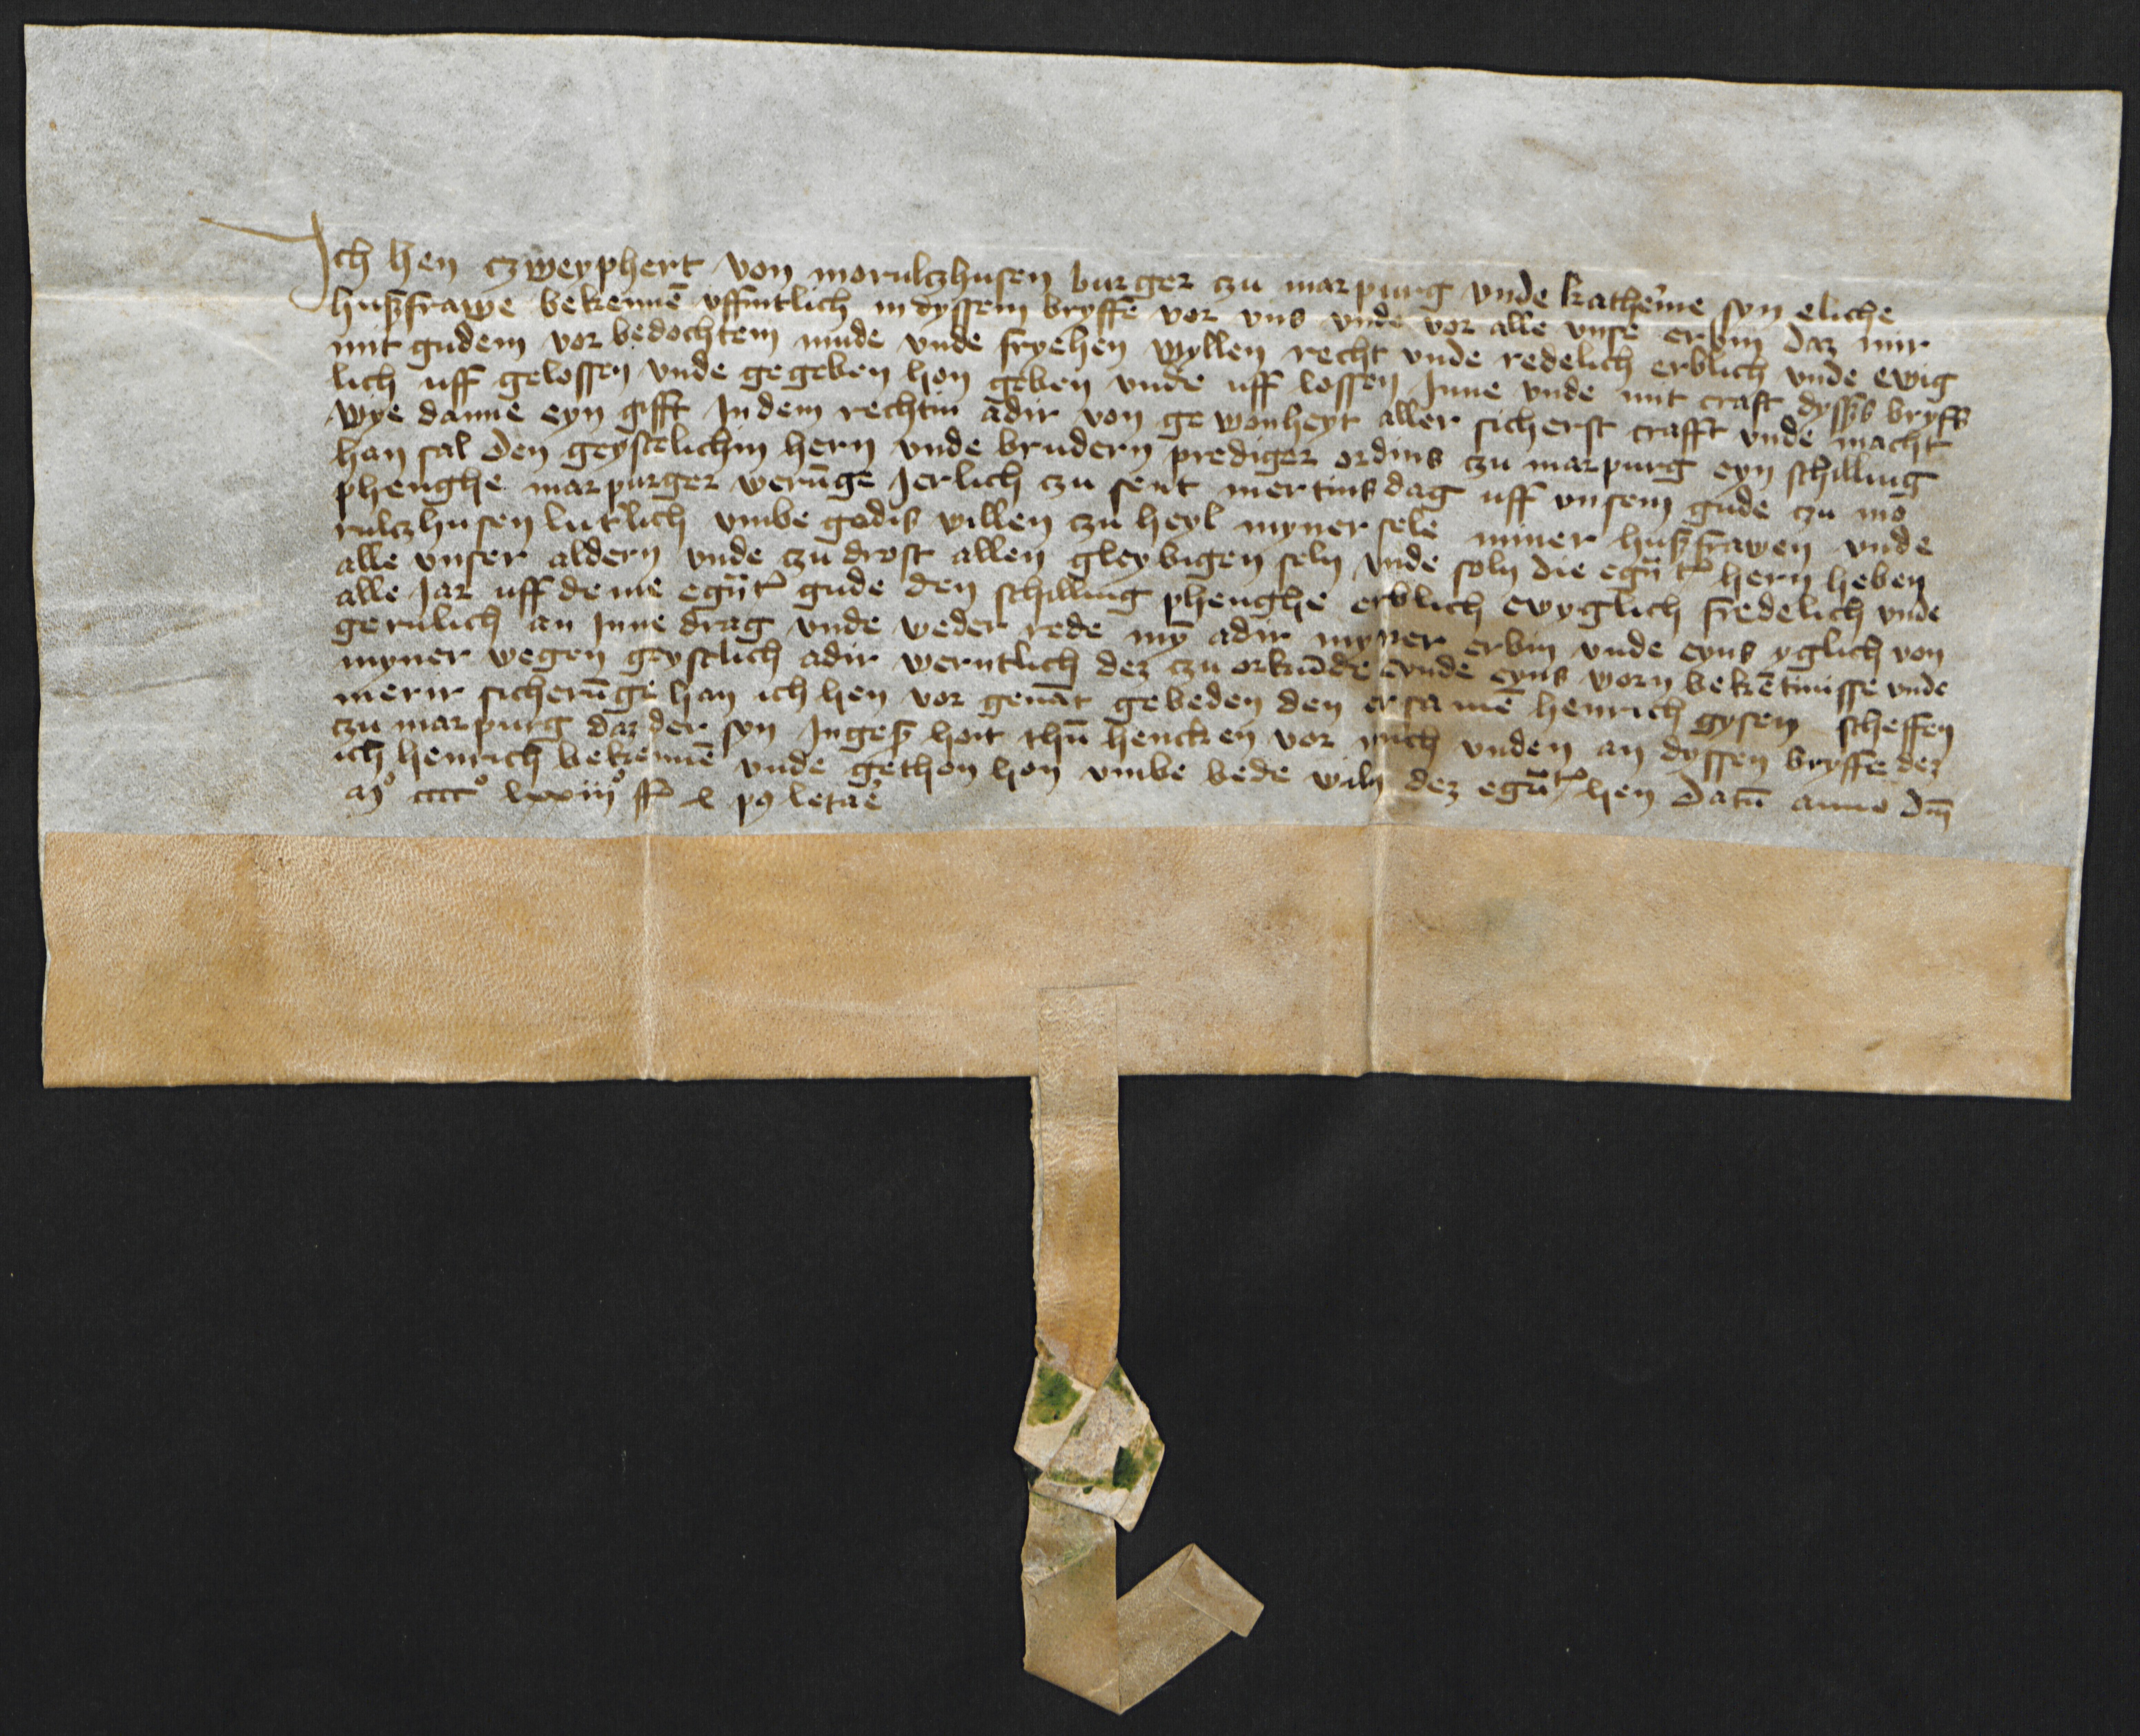 Ich Hen czweyphert von morulczhusen burger czu marpurg vnde katherine syn eliche
hußfrawe bekennē vffintlich in dyssem bryffe vor vns vnde vor alle vnse erbin daz mir
mit gudem vor bedochtem mude vnde fryehen wyllen recht vnde redelich erblich vnde ewig
lich uff gelossen vnde gegeben hon geben vnde uff lossen Inne vnde mit craft dysses bryffs
wye danne eyn gifft In dem rechtin adir von gewonheyt aller sicherst crafft vnde macht
han sal den geystelichin hern vnde brudern prediger ordins czu marpurg eyn schilling
phenghe marpurger werūge Jerlich czu sent mertins dag uff vnsem gude czu mo
rulczhusen luterlich vmbe godis willen czu heyl myner sele miner hußfrawen vnde
alle vnser aldern vnde czu drost allen gleybigen seln vnde soln die egn̄t hern heben
alle Jar uff deme egn̄t gude den schilling phenghe erblich ewyglich fredelich vnde
gerulich an Inne drag vnde weder rede my̅ adir myner erbin vnde eyns yglich von
myner wegen geystlich adir werntlich dez czu orkūde vnde eyns worn bekētnisse vnde
merir sicherūge han ich hen vor genāt gebeden den ersamē henrich gysen scheffen
czu marpurg daz der syn Ingeß hoit thū hencken vor mich vnden an dyssen bryffe dez
ich henrich bekennē vnde gethon hon vmbe bede wiln dez egn̄t hen Datū anno dn̄i
mº ccccº lxxiiiº ff x pꝯ letaē